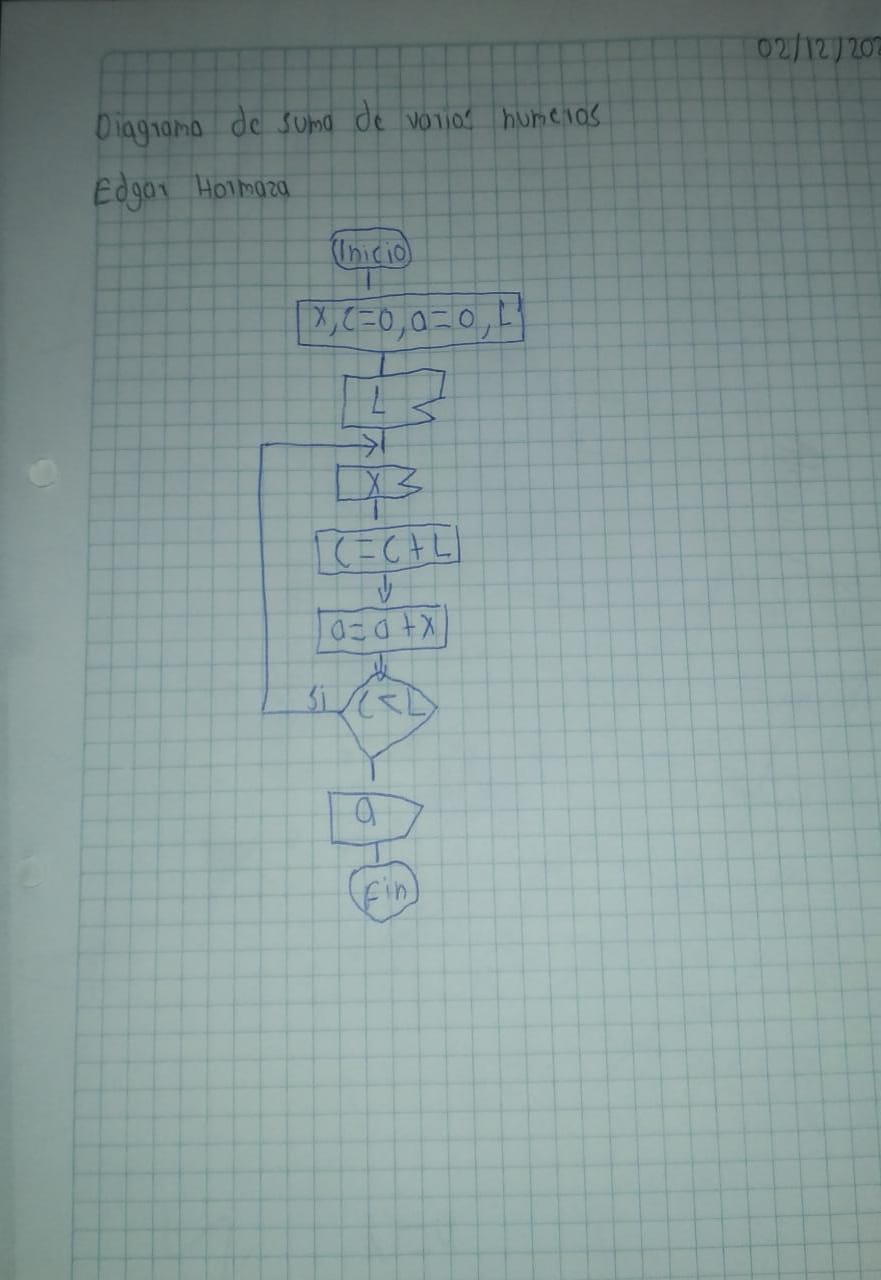 02/12/202
Diagrama de suma de varios numeros
Edgar Hormaza
Inicio
x, C=0, a=0, L
L
X
C=C+L
a=a+x
Si C<L
a
Fin